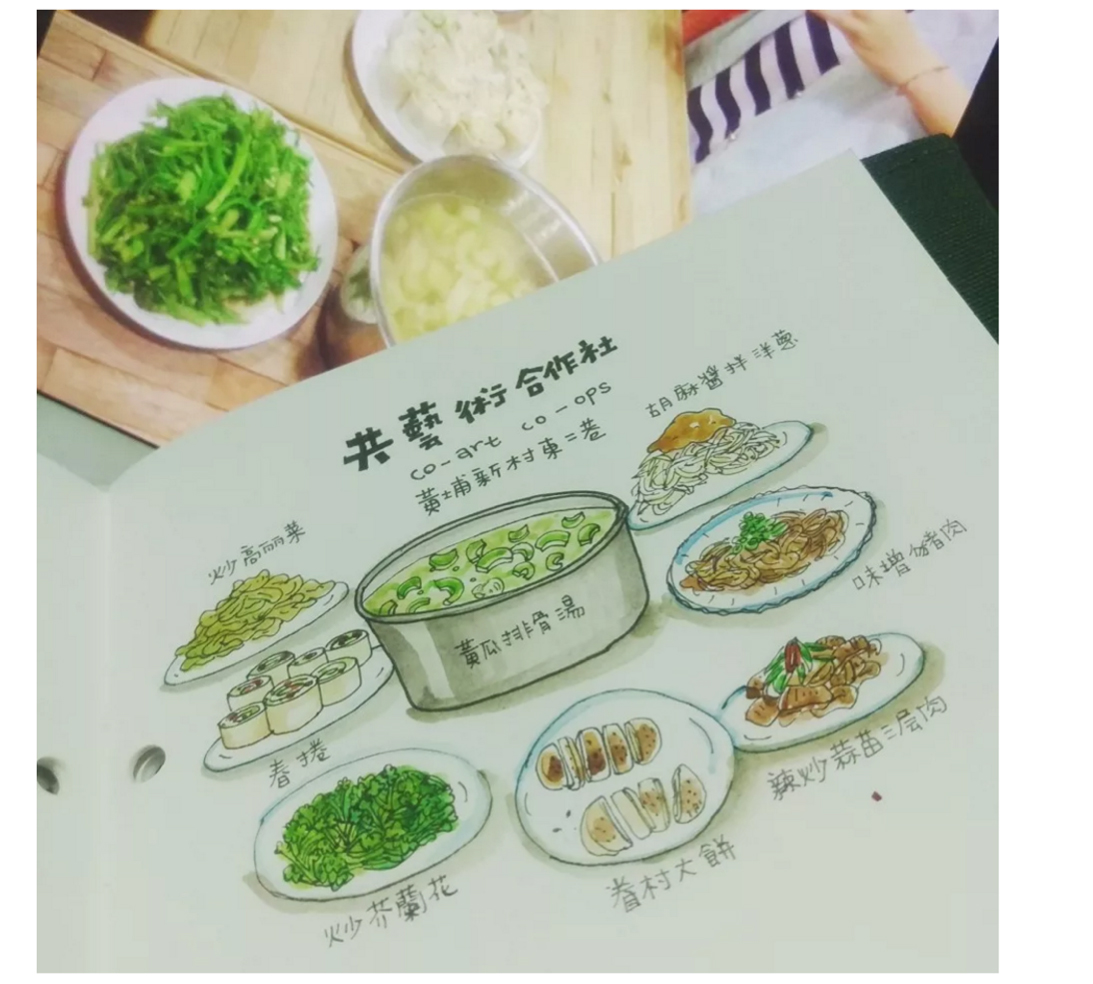 共藝術合作社
co-art co-ops
黃埔新村東二巷
胡麻醬拌洋蔥
炒高丽菜
味增豬肉
黃瓜排骨湯
春捲
辣炒蒜苗三层肉
炒芥蘭花
眷村大餅